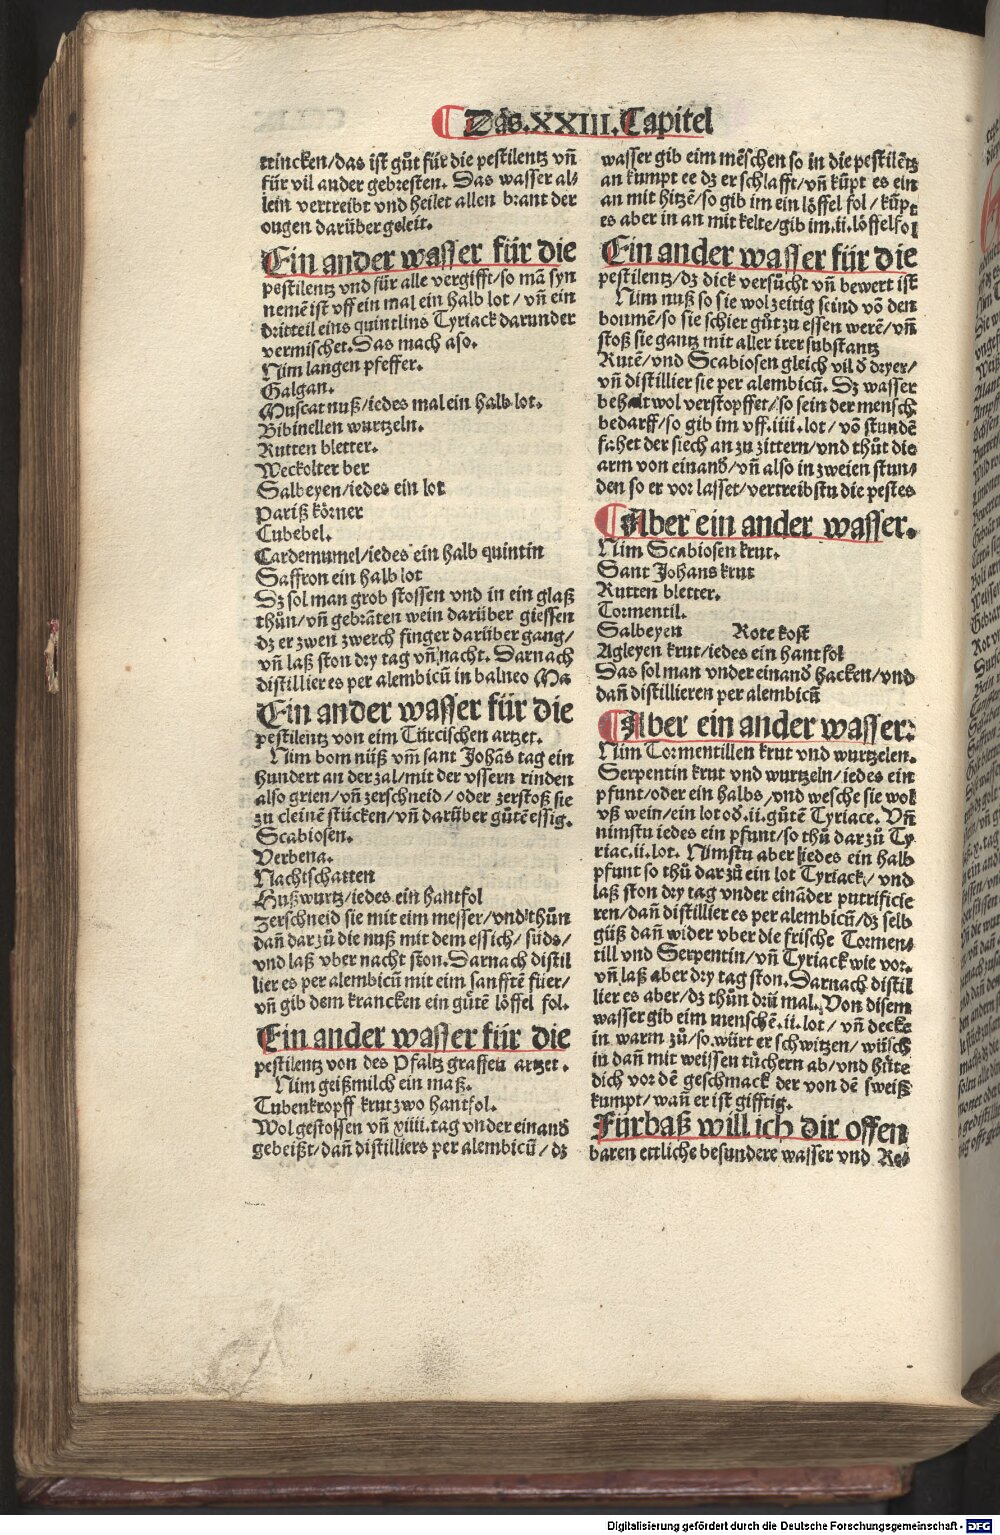 Das.XXIII.Capitel
trincken/das ist gůt für die pestilentz vñ
für vil ander gebresten. Das wasser al⸗
lein vertreibt vnd heilet allen brant der
ougen darüber geleit.
Ein ander wasser für die
pestilentz vnd für alle vergifft/so mã syn
nemẽ ist vff ein mal ein halb lot/vñ ein
dritteil eins quintlins Tyriack darunder
vermischet. Das mach aso.
Nim langen pfeffer.
Galgan.
Muscat nuß/iedes mal ein halb lot.
Bibinellen wurtzeln.
Rutten bletter.
Weckolter ber
Salbeyen/iedes ein lot
Pariß körner
Cubebel.
Cardemumel/iedes ein halb quintin
Saffron ein halb lot
Dz sol man grob stossen vnd in ein glaß
thůn/vñ gebrãten wein darüber giessen
dz er zwen zwerch finger darüber gang/
vñ laß ston dry tag vñ nacht. Darnach
distillier es per alembicũ in balneo Ma
Ein ander wasser für die
pestilentz von eim Türcischen artzet.
Nim bom nüß vm̃ sant Johãs tag ein
hundert an der zal/mit der vssern rinden
also grien/vñ zerschneid/oder zerstoß sie
zu cleinẽ stücken/vñ darüber gůtẽ essig.
Scabiosen.
Verbena.
Nachtschatten
Hußwurtz/iedes ein hantfol
Zerschneid sie mit eim messer/vnd thůn
dañ darzů die nuß mit dem essich/süds/
vnd laß vber nacht ston. Darnach distil
lier es per alembicũ mit eim sanfftẽ füer/
vñ gib dem krancken ein gůtẽ löffel fol.
Ein ander wasser für die
pestilentz von des Pfaltz graffen artzet.
Nim geißmilch ein maß.
Tubenkropff krut zwo hantfol.
Wol gestossen vñ xiiii.tag vnder einand
gebeißt/dañ distilliers per alembicũ/dz
wasser gib eim mẽschen so in die pestilẽtz
an kumpt ee dz er schlafft/vñ kũpt es ein
an mit hitzẽ/so gib im ein löffel fol/kũpt
es aber in an mit kelte/gib im.ii.löffelfol
Ein ander wasser für die
pestilentz/dz dick versůcht vñ bewert ist
Nim nuß so sie wol zeitig seind võ den
boumẽ/so sie schier gůt zu essen werẽ/vñ
stoß sie gantz mit aller irer substantz
Rutẽ/vnd Scabiosen gleich vil d dryer/
vñ distillier sie per alembicũ. Dz wasser
behalt wol verstopffet/so sein der mensch
bedarff/so gib im vff.iiii.lot/võ stundẽ
fahet der siech an zu zittern/vnd thůt die
arm von einand/vñ also in zweien stun⸗
den so er vor lasset/vertreibstu die pestes
Aber ein ander wasser.
Nim Scabiosen krut.
Sant Johans krut
Rutten bletter.
Tormentil.
Salbeyen Rote kost
Agleyen krut/iedes ein hantfol
Das sol man vnder einand hacken/vnd
dañ distillieren per alembicũ
Aber ein ander wasser:
Nim Tormentillen krut vnd wurtzelen.
Serpentin krut vnd wurtzeln/iedes ein
pfunt/oder ein halbs/vnd wesche sie wol
vß wein/ein lot od.ii.gůtẽ Tyriace. Vñ
nimstu iedes ein pfunt/so thů darzů Ty
riac.ii.lot. Nimstu aber iedes ein halb
pfunt so thů darzů ein lot Tyriack/vnd
laß ston dry tag vnder einãder putrificie
ren/dañ distillier es per alembicũ/dz selb
güß dañ wider vber die frische Tormen⸗
till vnd Serpentin/vñ Tyriack wie vor.
vñ laß aber dry tag ston. Darnach distil
lier es aber/dz thůn drü mal. Von disem
wasser gib eim menschẽ.ii.lot/vñ decke
in warm zů/so würt er schwitzen/wüsch
in dañ mit weissen tüchern ab/vnd hüte
dich vor dẽ geschmack der von dẽ sweiß
kumpt/wañ er ist gifftig.
Fürbaß will ich dir offen
baren ettliche besundere wasser vnd Re⸗
Digitalisierung gefördert durch die Deutsche Forschungsgemeinschaft - DFG